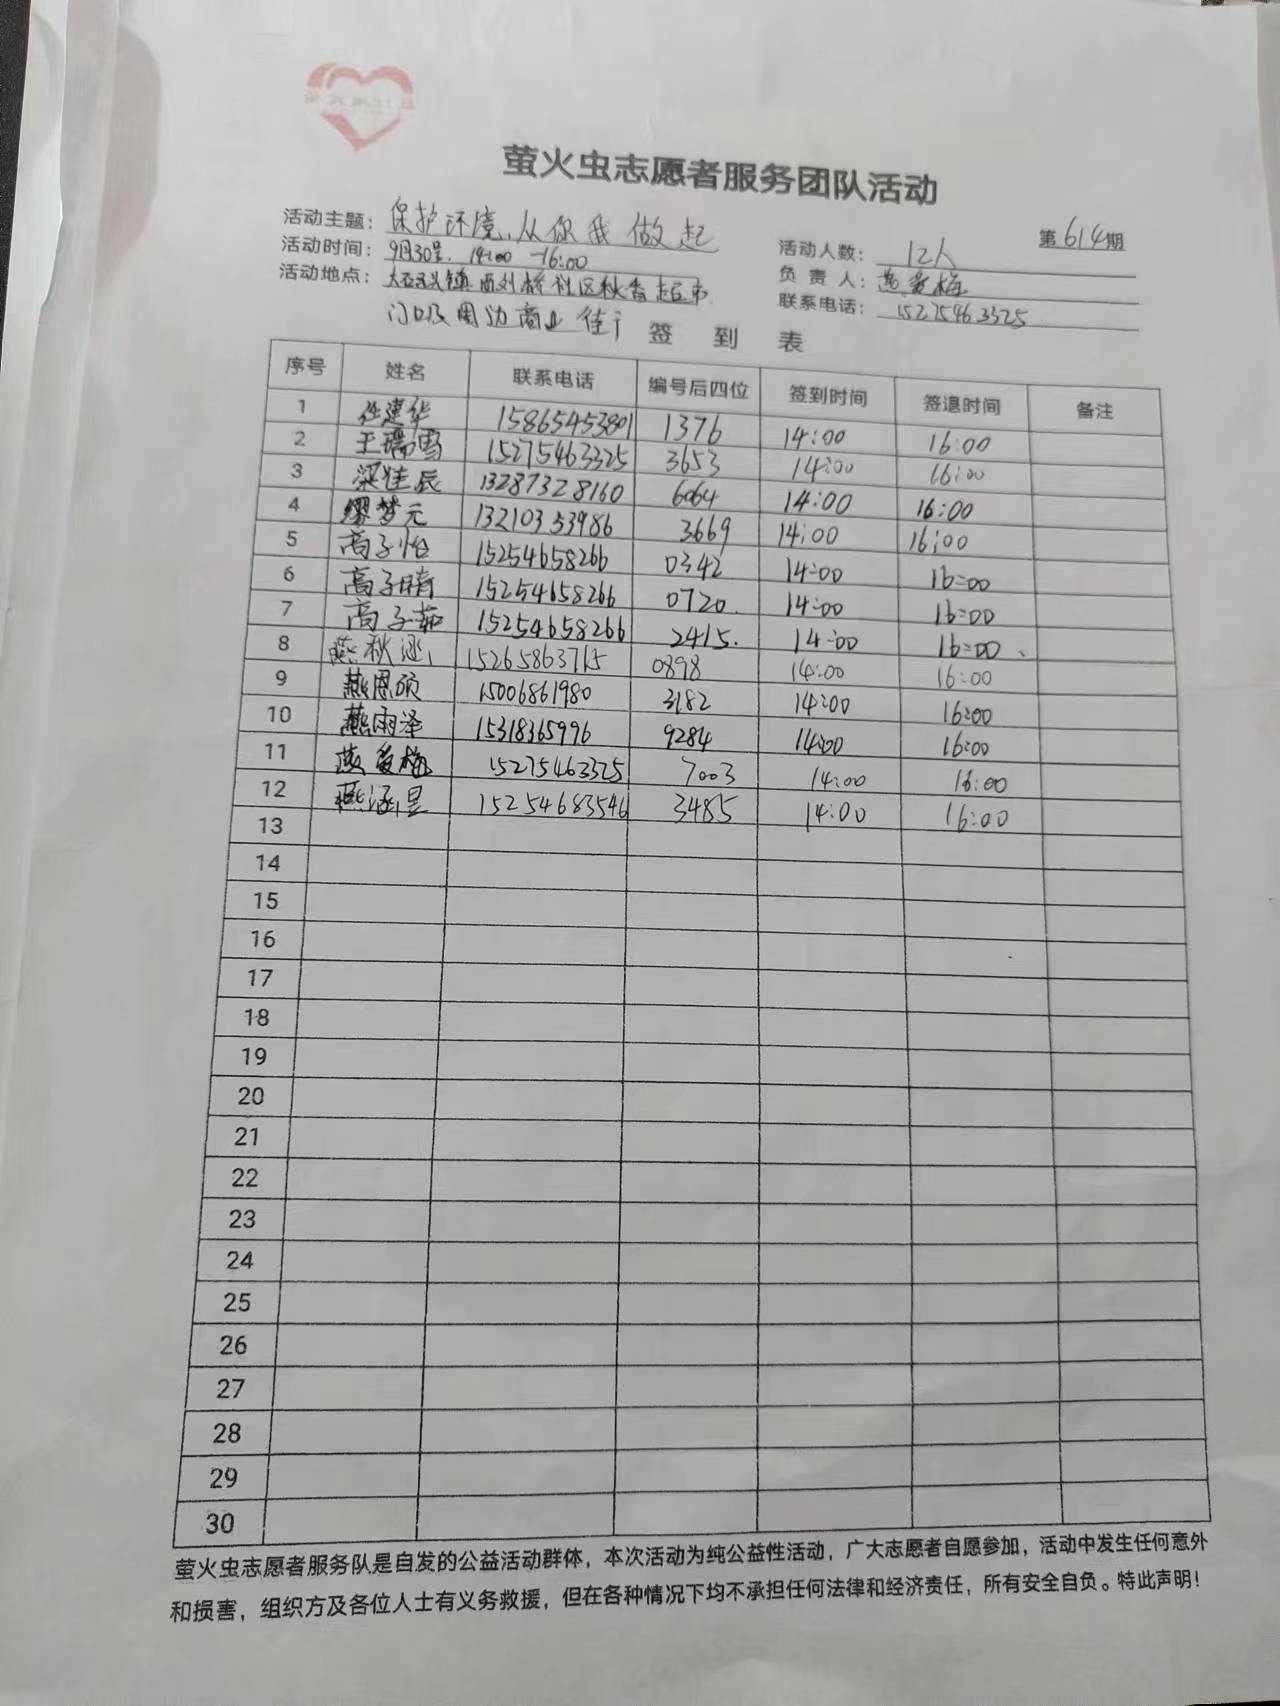 萤火虫志愿者服务团队活动
第614期
活动主题：保护环境，从你我做起
活动时间：9月30号. 14:00-16:00
活动地点：大王镇西刘桥社区秋香超市
门口及周边商业街
活动人数：12人
负责人：燕爱梅
联系电话：15275463325
签到表
序号 姓名 联系电话 编号后四位 签到时间 签退时间 备注
1 任建华 15865453801 1376 14:00 16:00
2 王瑞雪 15275463325 3653 14:00 16:00
3 梁佳辰 13287328160 6064 14:00 16:00
4 缪梦元 13210353986 3669 14:00 16:00
5 高子怡 15254658266 0342 14:00 16:00
6 高子晴 15254658266 0720. 14:00 16:00
7 高子茹 15254658266 2415. 14:00 16:00、
8 燕秋涵 15265863715 0898 14:00 16:00
9 燕恩硕 15006861980 3182 14:00 16:00
10 燕雨泽 15318365996 9284 14:00 16:00
11 燕爱梅 15275463325 7003 14:00 16:00
12 燕涵昱 15254683546 3485 14:00 16:00
13
14
15
16
17
18
19
20
21
22
23
24
25
26
27
28
29
30
萤火虫志愿者服务队是自发的公益活动群体，本次活动为纯公益性活动，广大志愿者自愿参加，活动中发生任何意外
和损害，组织方及各位人士有义务救援，但在各种情况下均不承担任何法律和经济责任，所有安全自负。特此声明！